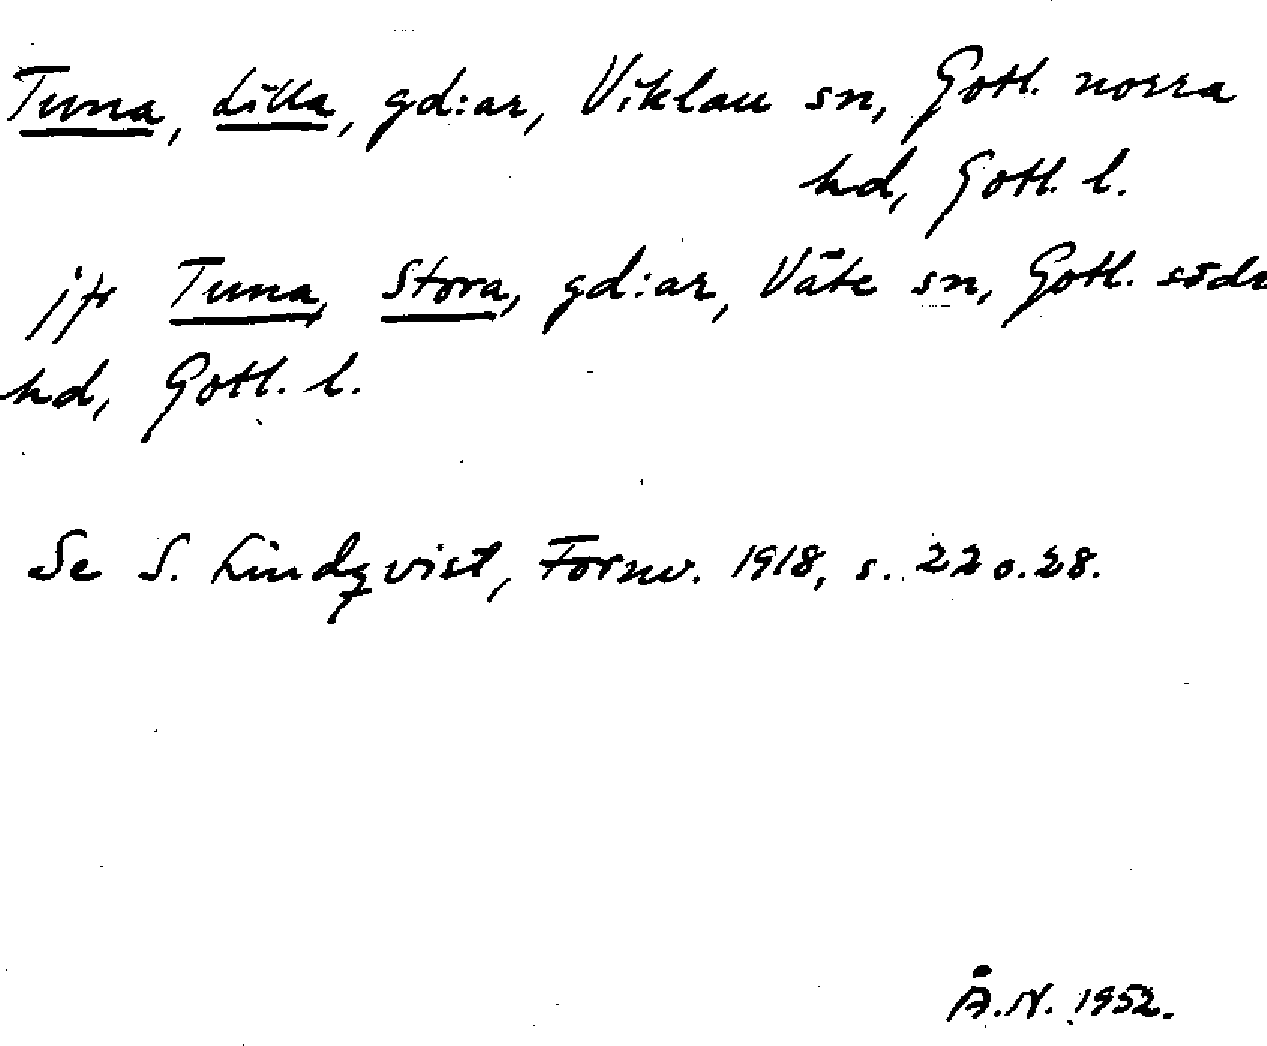 Tuna, Lilla, gd:ar, Viklau sn, Gotl. norra
hd, Gotl. l.
jfr Tuna, Stora, gd:ar, Väte sn, Gotl. södr
hd, Gotl. l.
Se S. Lindqvist, Fornv. 1918, s. 22 o. 28.
Å.N. 1952.